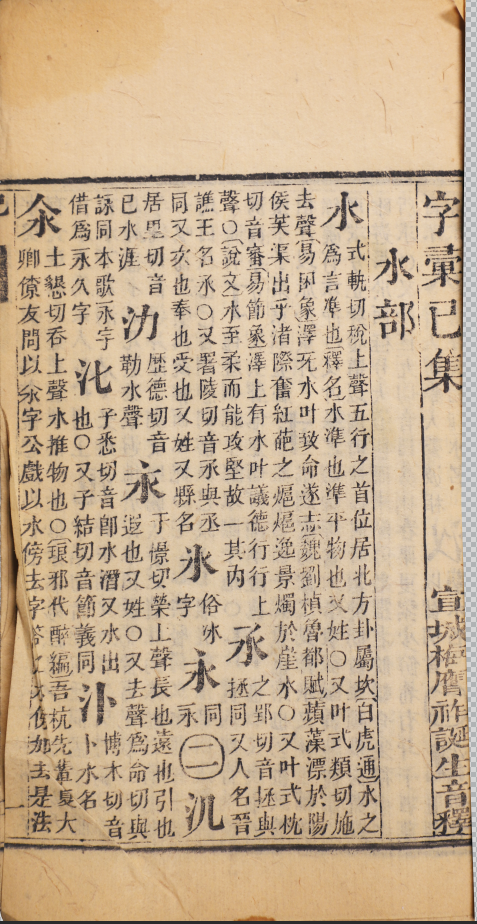 字彙巳集
宣城梅膺祚誕生音釋
水部
水 式軌切稅上聲五行之首位居北方卦屬坎白虎通水之
爲言準也釋名水準也準平物也又姓○又叶式類切施
去聲易困象澤无水叶致命遂志魏劉楨魯都賦蘋藻漂於陽
侯芙渠出乎渚際奮紅葩之熝熝逸景燭於崖水○又叶式枕
切音審易節象澤上有水叶議德行行上
聲○說文水至柔而能攻堅故一其内
氶 之郢切音拯與
拯同又人名晉
譙王名氶○又署陵切音丞與丞
同又次也奉也受也又姓又縣名
氷 俗冰
字
永 同
永
二
氿
居里切音
巳水涯
氻 歷德切音
勒水聲
永 于憬切榮上聲長也遠也引也
遐也又姓○又去聲爲命切與
詠同本歌永字
借爲永久字
㲺 子悉切音卽水潛又水出
也○又子結切音節義同
汃 博木切音
卜水名
氽 土懇切吞上聲水推物也○琅邪代醉編吾杭先輩夏大
卿僚友問以氽字公戲以水傍去字答之
是法